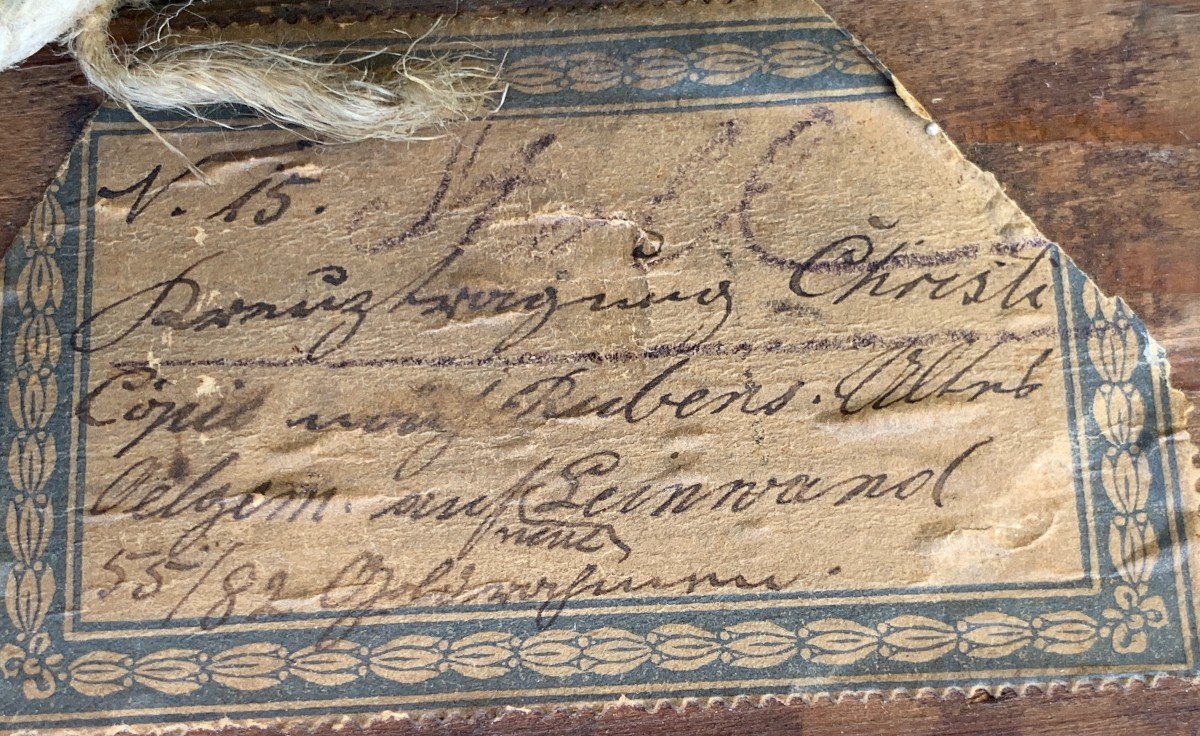 N. 15.
Kreuztragung Christi
Copie nach Rubens. Altes
Oelgem. auf Leinwand
neue
55/82 Goldrahmen.